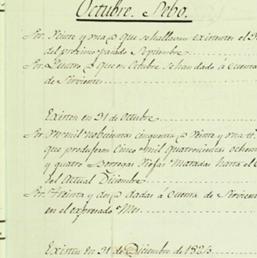 Octubre. Sebo.
Por Veinte y una @ que se hallaron existentes el 3
del proximo pasado Septiembre
Por Quatro @ que en Octubre se han dado á cuenta
de Sirvientes
Existen en 31 de Octubre
Por mil novecientas cinquenta y Veinte y una
que produjeron Cinco mil quatrocientas ochen
y quatro Borregas Viejas Matadas hasta el
del Actual Diciembre
Por Treinta y dos @ dadas á cuenta de Sirvien
en el expresado Mes
Existen en 31 de Diciembre de 1823